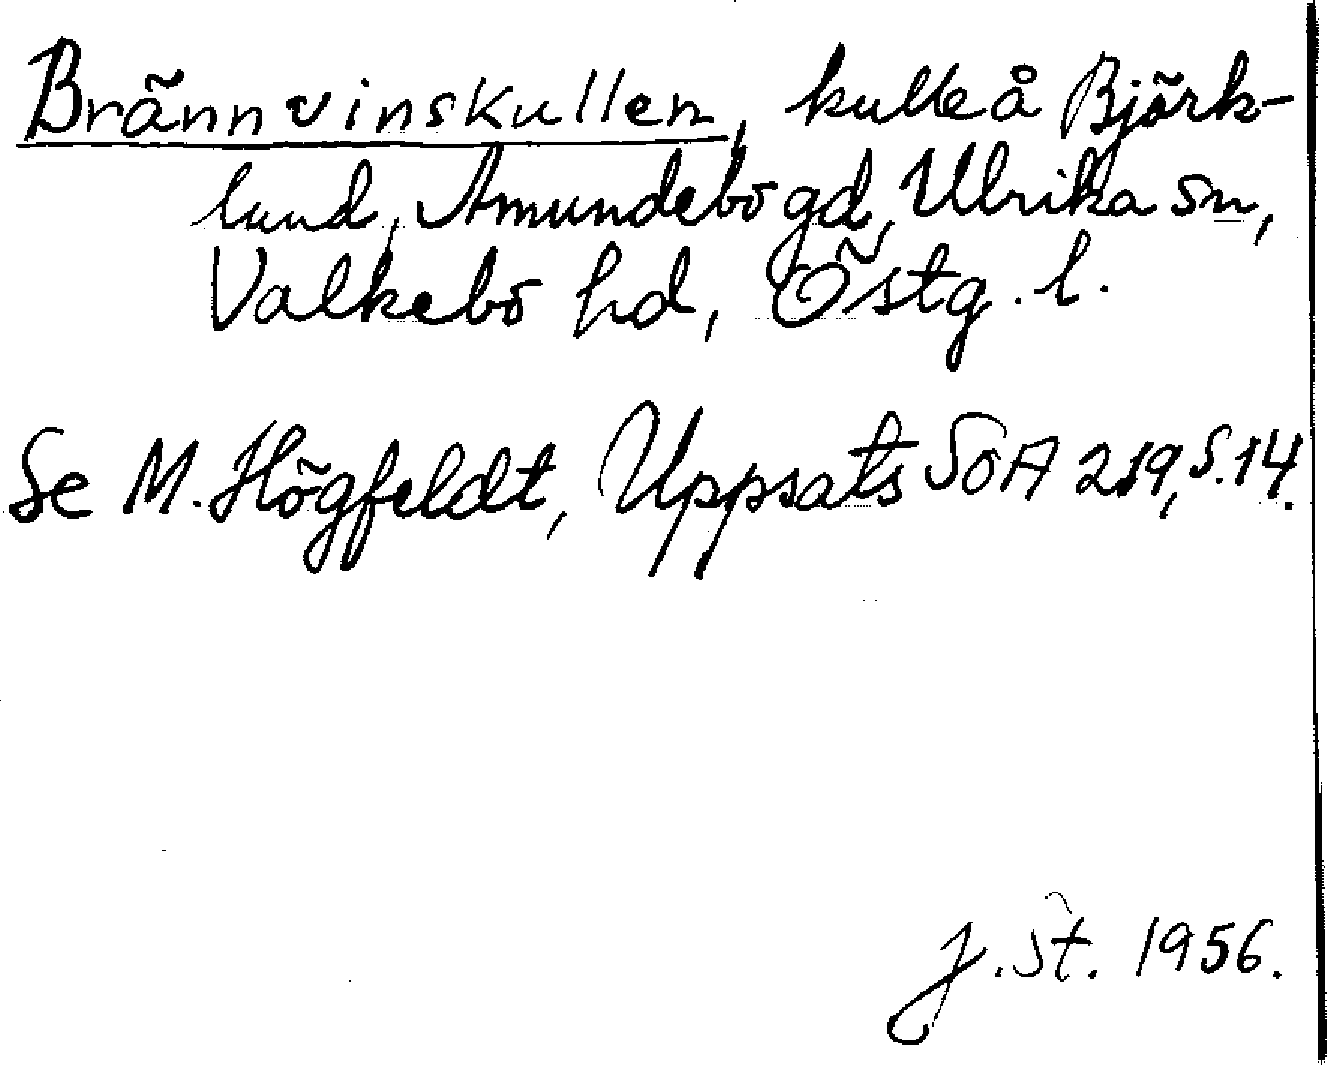 Brännvinskullen, kulle å Björk-
lund, Amundebo gd, Ulrika sn,
Valkebo hd, Östg. l.
Se M. Högfeldt, Uppsats SOA 219, s. 14.
J. St. 1956.